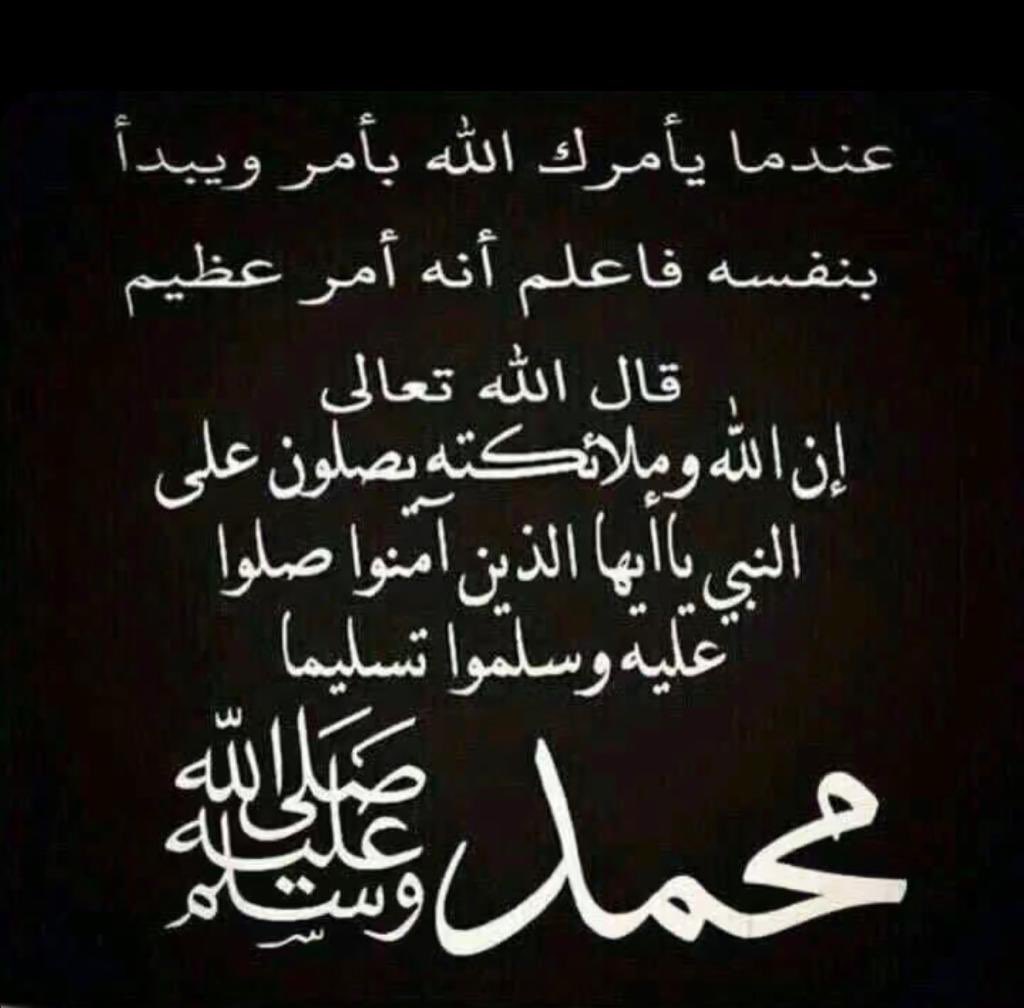 عندما يأمرك الله بأمر ويبدأ
بنفسه فاعلم أنه أمر عظيم
قال الله تعالى
إن الله وملائكته يصلون على
النبي ياأيها الذين آمنوا صلوا
عليه وسلموا تسليما
محمد صلى الله عليه وسلم